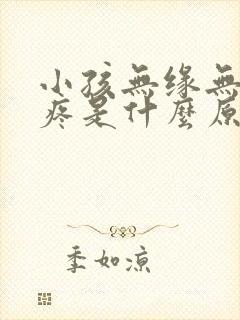 小孩無缘無
疼是什麼原
季如凉